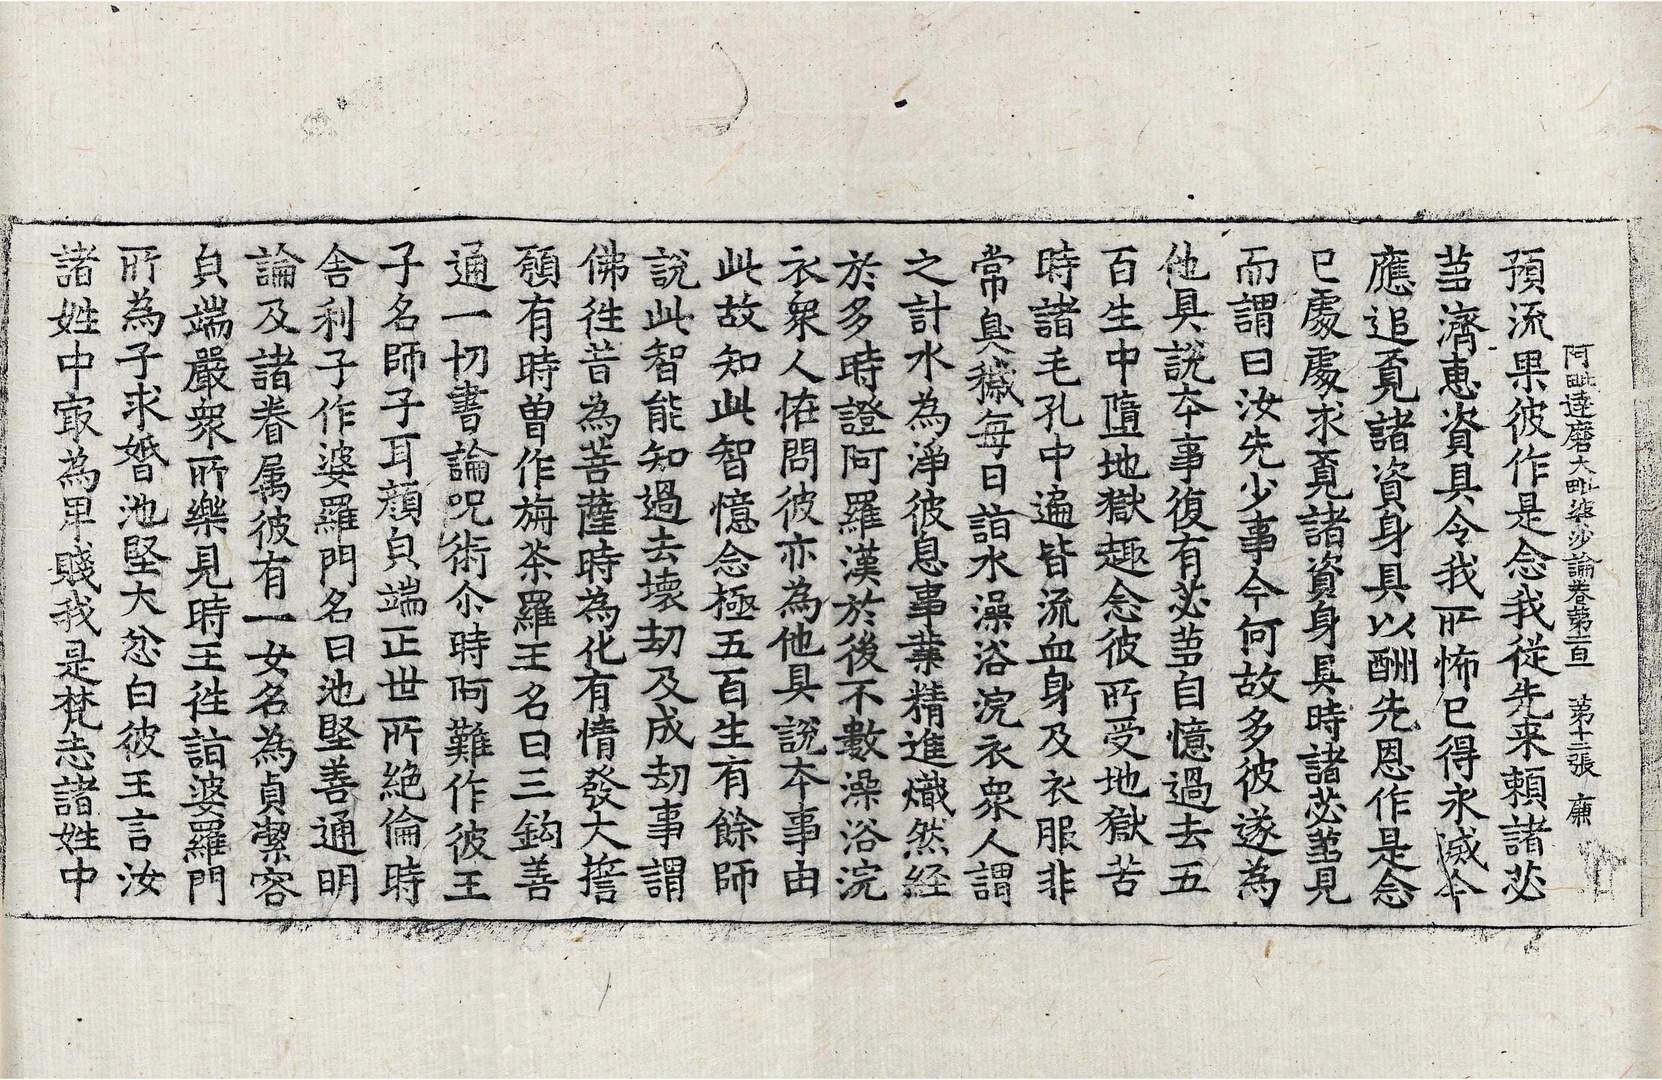 阿毗達磨大毗婆沙論卷第一百一　第十二張　廉
預流果彼作是念我從先来賴諸苾
芻濟惠資具令我所怖已得永滅今
應追覓諸資身具以酬先恩作是念
已處處求覓諸資身具時諸苾芻見
而謂曰汝先少事今何故多彼遂為
他具說夲事復有苾芻自憶過去五
百生中墮地獄趣念彼所受地獄苦
時諸毛孔中遍皆流血身及衣服非
常臭穢每日詣水澡浴浣衣衆人謂
之計水為淨彼息事業精進熾然経
於多時證阿羅漢於後不數澡浴浣
衣衆人恠問彼亦為他具說夲事由
此故知此智憶念極五百生有餘師
說此智能知過去壞劫及成劫事謂
佛徃昔為菩薩時為化有情發大誓
願有時曾作旃茶羅王名曰三鈎善
通一切書論呪術尒時阿難作彼王
子名師子耳顔皃端正世所絶倫時
舍利子作婆羅門名曰池堅善通明
論及諸眷属彼有一女名為貞潔容
皃端嚴衆所樂見時王徃詣婆羅門
所為子求婚池堅大忿白彼王言汝
諸姓中㝡為卑賤我是梵志諸姓中